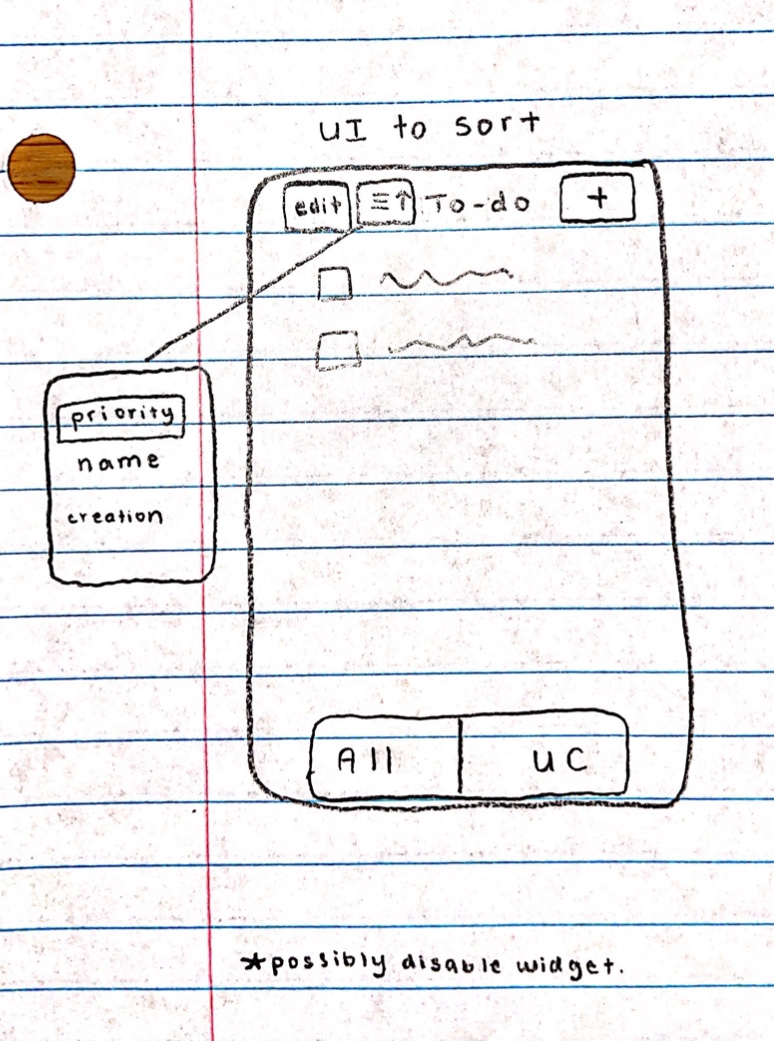 UI to sort
edit ≡↑ To-do +
priority
name
creation
All UC
*possibly disable widget.